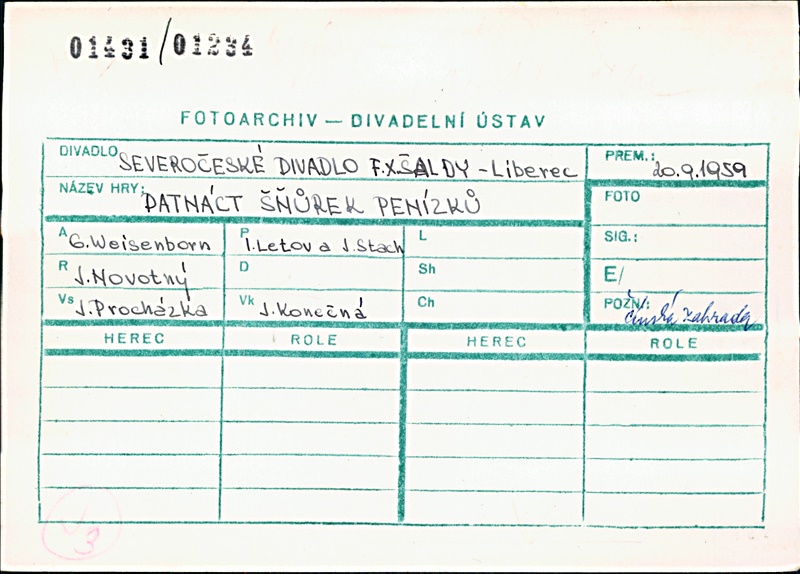 01431/01234
FOTOARCHIV — DIVADELNÍ ÚSTAV
DIVADLO SEVEROČESKÉ DIVADLO F.X.ŠALDY - Liberec
PREM.: 20.9.1959
NÁZEV HRY: PATNÁCT ŠŇŮREK PENÍZKŮ
FOTO
A G. Weisenborn P I. Letov a J. Stach L
SIG.:
R J. Novotný D Sh
E/
Vs J. Procházka Vk J. Konečná Ch
POZN.: čínská zahrada
HEREC ROLE HEREC ROLE
3